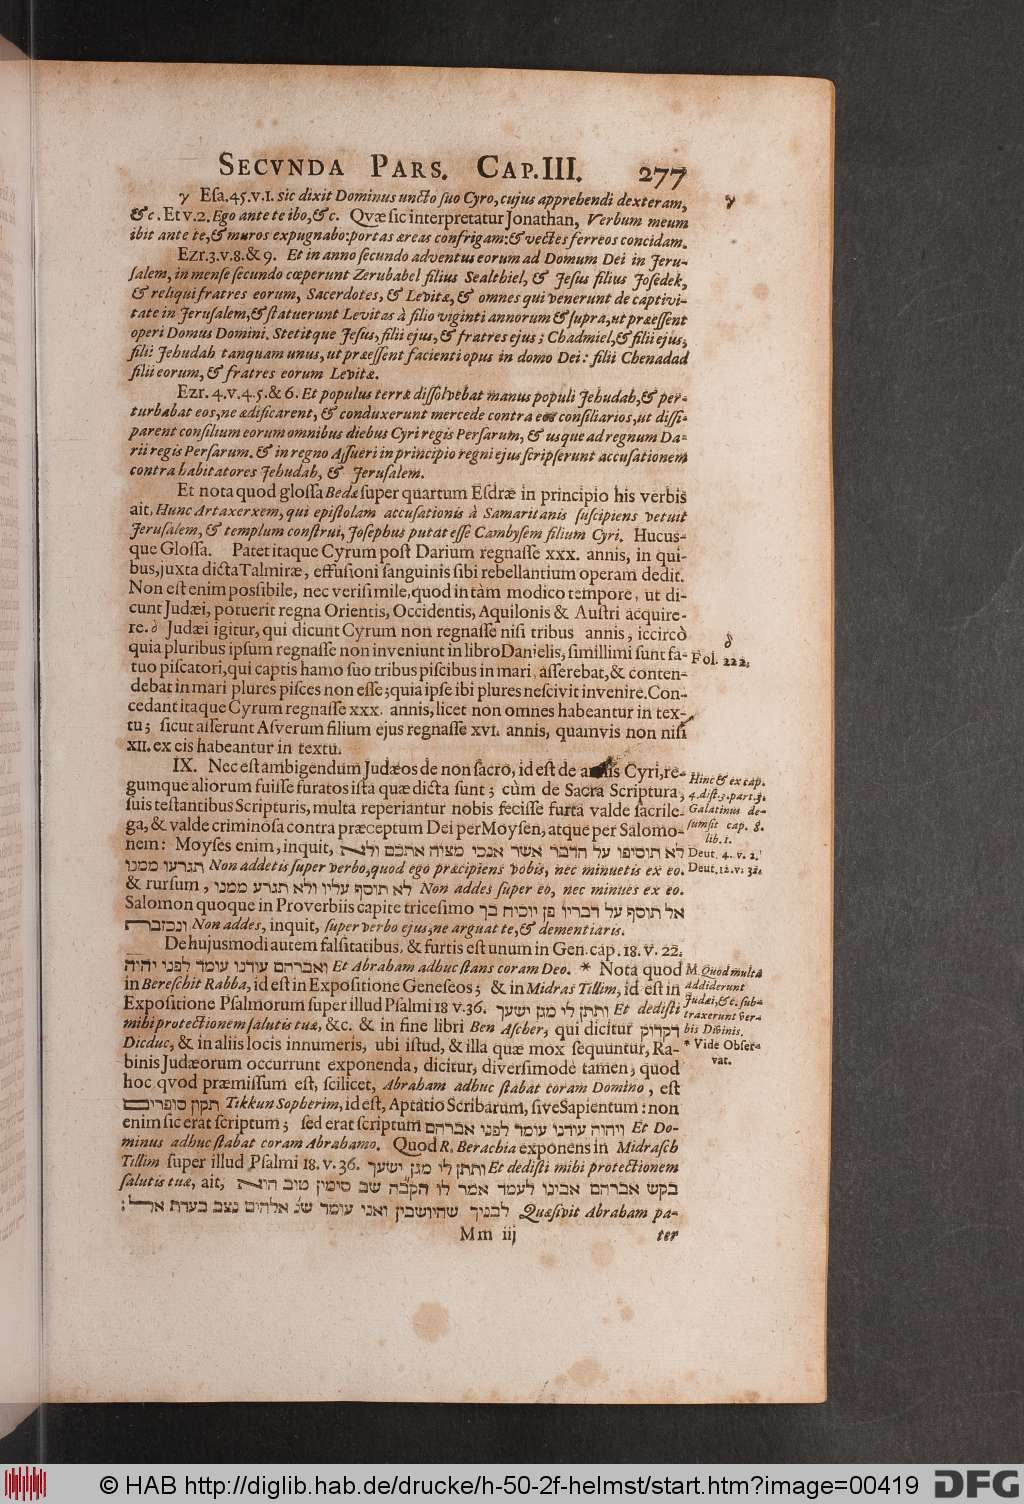 SECVNDA PARS. CAP. III. 277
γ Esa. 45. v. 1. sic dixit Dominus uncto suo Cyro, cujus apprehendi dexteram, γ
&c. Et v. 2. Ego ante te ibo, &c. Quæ sic interpretatur Jonathan, Verbum meum
ibit ante te, & muros expugnabo: portas æreas confrigam: & vectes ferreos concidam.
Ezr. 3. v. 8. & 9. Et in anno secundo adventus eorum ad Domum Dei in Jeru-
salem, in mense secundo cœperunt Zerubabel filius Sealthiel, & Jesus filius Josedek,
& reliqui fratres eorum, Sacerdotes, & Levitæ, & omnes qui venerunt de captivi-
tate in Jerusalem, & statuerunt Levitas à filio viginti annorum & supra, ut præessent
operi Domus Domini. Stetitque Jesus, filii ejus, & fratres ejus; Chadmiel, & filii ejus,
filii Jehudah tanquam unus, ut præessent facienti opus in domo Dei: filii Chenadad
filii eorum, & fratres eorum Levitæ.
Ezr. 4. v. 4. 5. & 6. Et populus terræ dissolvebat manus populi Jehudah, & per-
turbabat eos, ne ædificarent, & conduxerunt mercede contra eos consiliarios, ut dissi-
parent consilium eorum omnibus diebus Cyri regis Persarum, & usque ad regnum Da-
rii regis Persarum. & in regno Assueri in principio regni ejus scripserunt accusationem
contra habitatores Jehudah, & Jerusalem.
Et nota quod glossa Bedæ super quartum Esdræ in principio his verbis
ait, Hunc Artaxerxem, qui epistolam accusationis à Samaritanis suscipiens vetuit
Jerusalem, & templum construi, Josephus putat esse Cambysem filium Cyri. Hucus-
que Glossa. Patet itaque Cyrum post Darium regnasse xxx. annis, in qui-
bus, juxta dicta Talmiræ, effusioni sanguinis sibi rebellantium operam dedit.
Non est enim possibile, nec verisimile, quod in tàm modico tempore, ut di-
cunt Judæi, potuerit regna Orientis, Occidentis, Aquilonis & Austri acquire-
re. δ Judæi igitur, qui dicunt Cyrum non regnasse nisi tribus annis, iccircò δ
quia pluribus ipsum regnasse non inveniunt in libro Danielis, simillimi sunt fa- Fol. 222.
tuo piscatori, qui captis hamo suo tribus piscibus in mari, asserebat, & conten-
debat in mari plures pisces non esse; quia ipse ibi plures nescivit invenire. Con-
cedant itaque Cyrum regnasse xxx. annis, licet non omnes habeantur in tex-
tu; sicut asserunt Asverum filium ejus regnasse xvi. annis, quamvis non nisi
XII. ex eis habeantur in textu.
IX. Nec est ambigendum Judæos de non sacro, id est de annis Cyri, re-
gumque aliorum fuisse furatos ista quæ dicta sunt; cùm de Sacra Scriptura,
suis testantibus Scripturis, multa reperiantur nobis fecisse furta valde sacrile-
ga, & valde criminosa contra præceptum Dei per Moysen, atque per Salomo-
nem: Moyses enim, inquit, לא תוסיפו על הדבר אשר אנכי מצוה אתכם ולא
תגרעו ממנו Non addetis super verbo, quod ego præcipiens vobis, nec minuetis ex eo.
& rursum, לא תוסף עליו ולא תגרע ממנו Non addes super eo, nec minues ex eo.
Salomon quoque in Proverbiis capite tricesimo אל תוסף על דבריו פן יוכיח בך
ונכזבת Non addes, inquit, super verbo ejus, ne arguat te, & dementiaris.
De hujusmodi autem falsitatibus, & furtis est unum in Gen. cap. 18. v. 22.
ואברהם עודנו עומד לפני יהוה Et Abraham adhuc stans coram Deo. * Nota quod
in Bereschit Rabba, id est in Expositione Geneseos; & in Midras Tillim, id est in
Expositione Psalmorum super illud Psalmi 18 v. 36. ותתן לי מגן ישעך Et dedisti
mihi protectionem salutis tuæ, &c. & in fine libri Ben Ascher, qui dicitur דקדוק
Dicduc, & in aliis locis innumeris, ubi istud, & illa quæ mox sequuntur, Ra-
binis Judæorum occurrunt exponenda, dicitur, diversimodè tamen, quod
hoc qvod præmissum est, scilicet, Abraham adhuc stabat coram Domino, est
תקון סופרים Tikkun Sopherim, id est, Aptatio Scribarum, sive Sapientum: non
enim sic erat scriptum; sed erat scriptum ויהוה עודנו עומד לפני אברהם Et Do-
minus adhuc stabat coram Abrahamo. Quod R. Berachia exponens in Midrasch
Tillim super illud Psalmi 18. v. 36. ותתן לי מגן ישעך Et dedisti mihi protectionem
salutis tuæ, ait, בקש אברהם אבינו לעמד אמר לו הקבה שב סימין טוב הוא
לבניך שהיושבין ואני עומד שנ׳ אלהים נצב בעדת אל: Quæsivit Abraham pa-
Mm iij ter
Hinc & ex cap.
4. dist. 3. part. 3.
Galatinus de-
sumsit cap. 8.
lib. 1.
Deut. 4. v. 2.
Deut. 12. v. 32.
M Quod multa
addiderunt
Judæi, &c. sub-
traxerunt ver-
bis Divinis.
* Vide Obser-
vat.
© HAB http://diglib.hab.de/drucke/h-50-2f-helmst/start.htm?image=00419 DFG